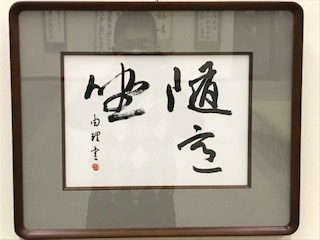 随意
坐
由理書